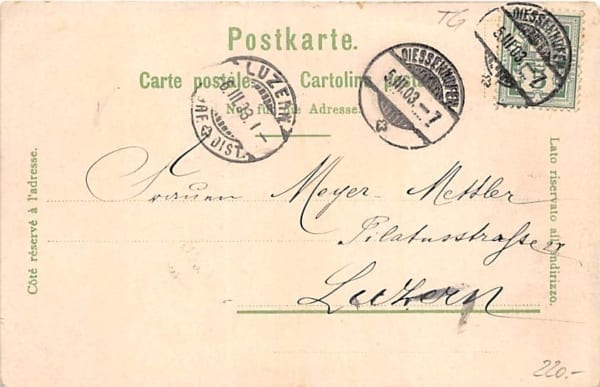 TG
Postkarte.
Carte postale. Cartolina postale.
Nur für die Adresse.
LUZERN
6.III.03.7-
BRF. DIST.
DIESSENHOFEN
5.III.03.-7
DIESSENHOFEN
5.III.03.-7
Côté réservé à l'adresse.
Lato riservato all'indirizzo.
Frauen Meyer-Mettler
Pilatusstrasse
Luzern
220.-